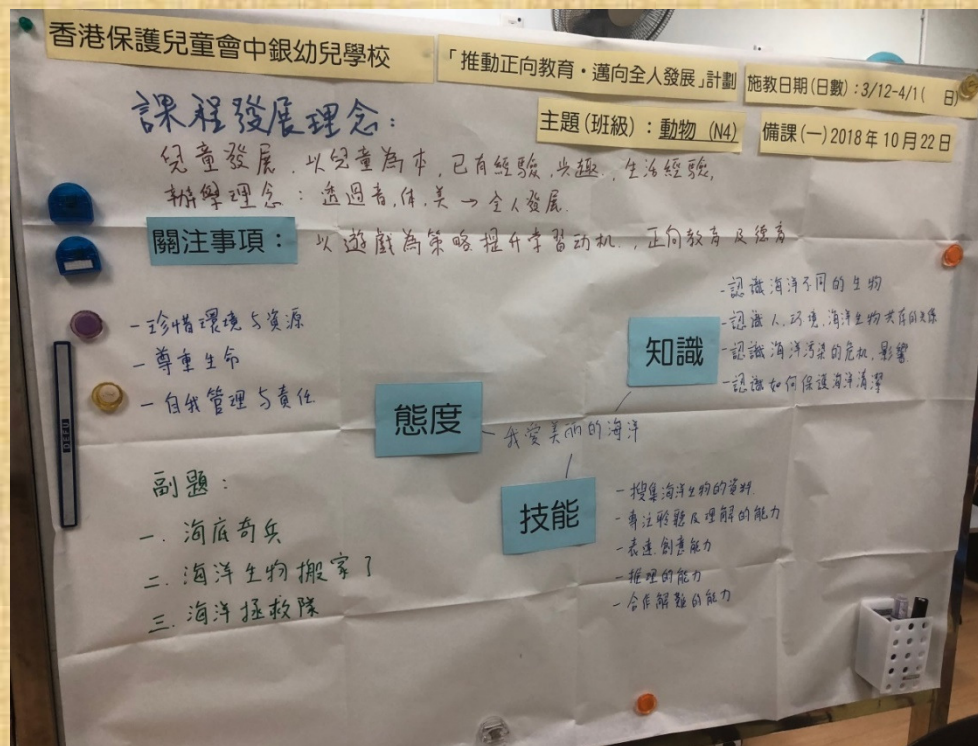 香港保護兒童會中銀幼兒學校
「推動正向教育・邁向全人發展」計劃
施教日期(日數):3/12-4/1( 日)
主題(班級):動物 (N4)
備課(一)2018年10月22日
課程發展理念:
兒童發展,以兒童為本,已有經驗,兴趣,生活經驗,
辦學理念:透過音,体,美→全人發展.
關注事項:
以遊戲為策略提升学習动机,正向教育及德育
-珍惜環境与資源
-尊重生命
-自我管理与責任
態度
知識
-認識海洋不同的生物
-認識人,环境,海洋生物共存的关係
-認識海洋污染的危机,影響
-認識如何保護海洋清潔
我愛美丽的海洋
技能
-搜集海洋生物的資料
-專注聆聽及理解的能力
-表達,創意能力
-推理的能力
-合作解難的能力
副題:
一.海底奇兵
二.海洋生物搬家了
三.海洋拯救隊